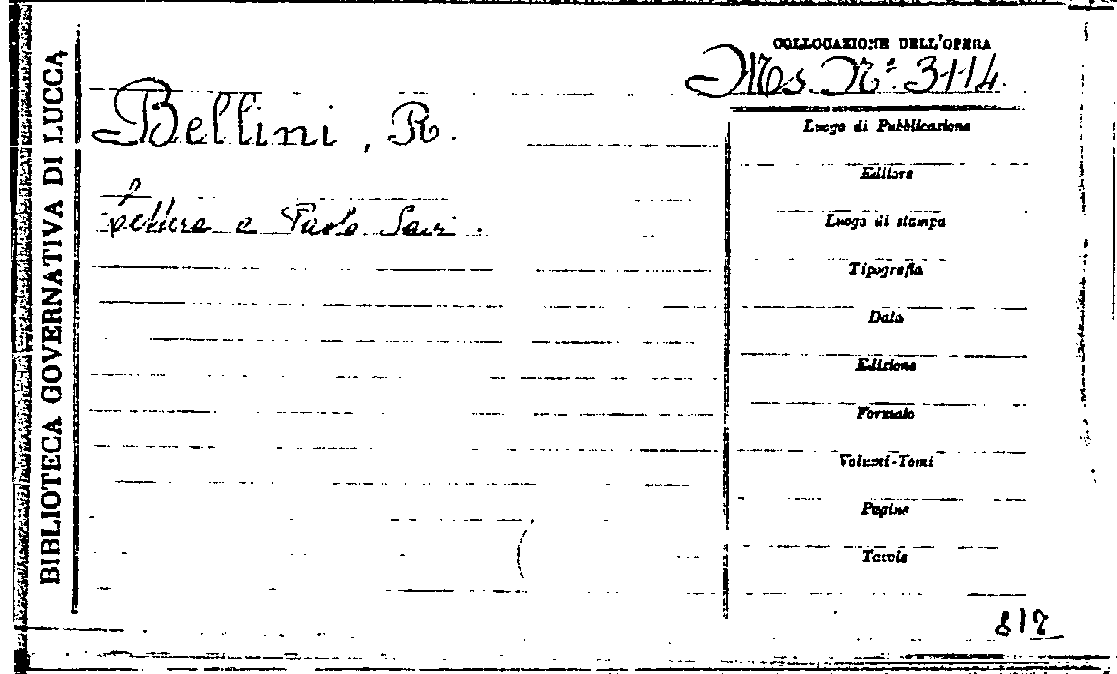 BIBLIOTECA GOVERNATIVA DI LUCCA
COLLOCAZIONE DELL'OPERA
Ms. N° 3114.
Bellini, R.
Lettera a Paolo
Luogo di Pubblicazione
Editore
Luogo di stampa
Tipografia
Data
Edizione
Formato
Volumi-Tomi
Pagine
Tavole
817